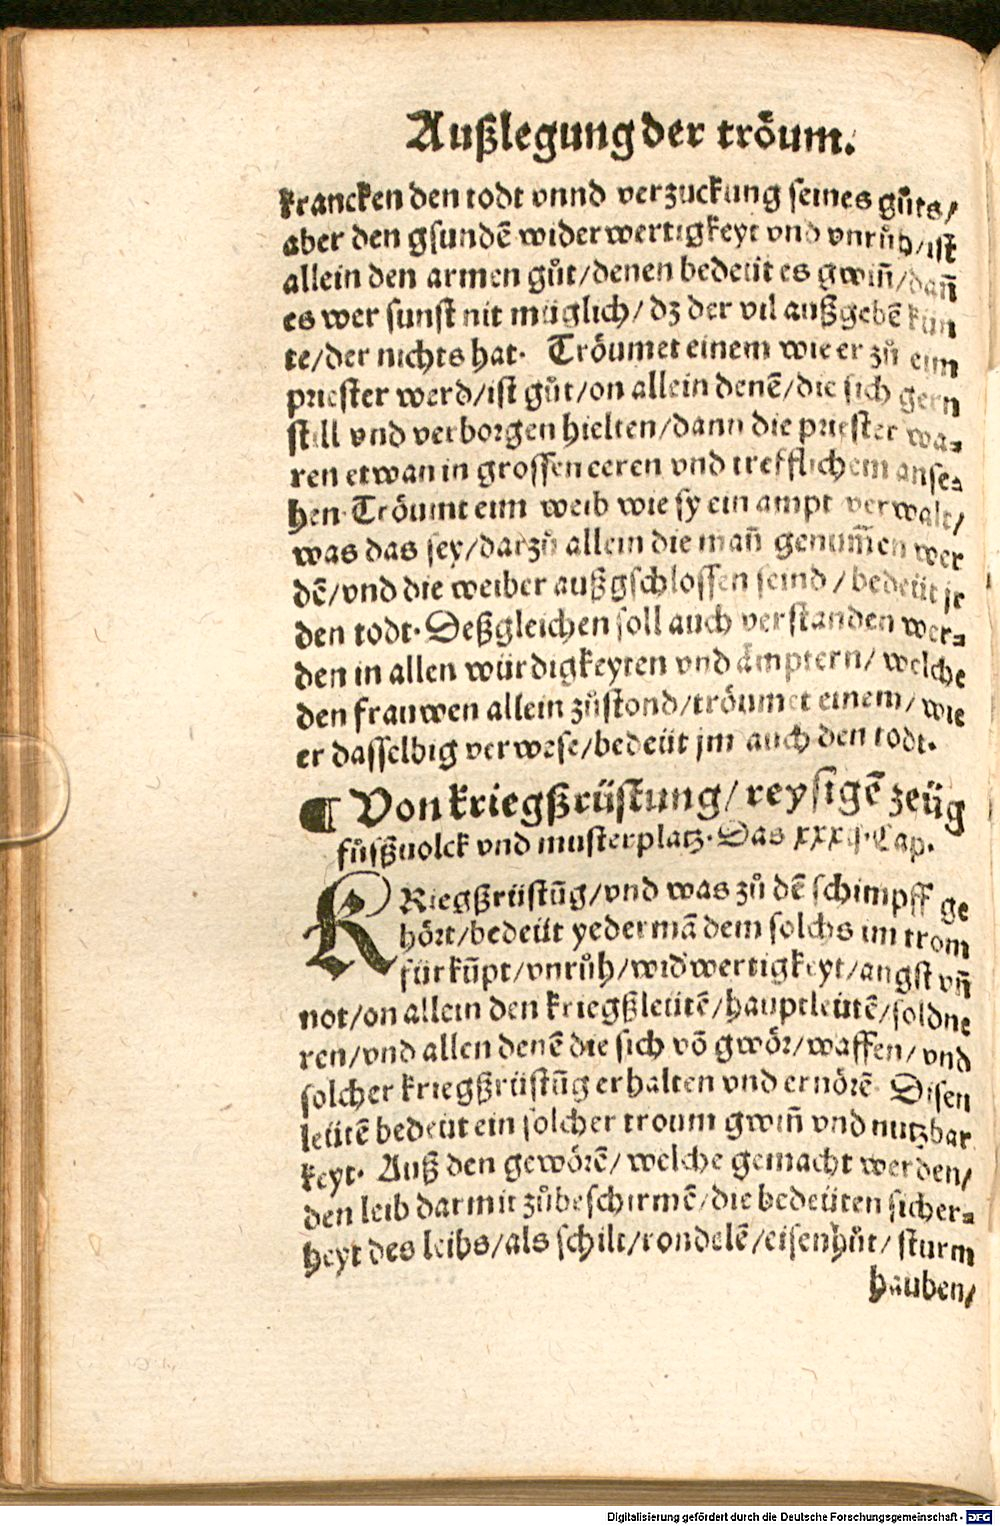 Außlegung der tröum.
krancken den todt vnnd verzuckung seines gůts/
aber den gsundẽ widerwertigkeyt vnd vnrůh/ist
allein den armen gůt/denen bedeüt es gwiñ/dañ
es wer sunst nit müglich/dz der vil außgebẽ kün
te/der nichts hat. Tröumet einem wie er zů eim
priester werd/ist gůt/on allein denẽ/die sich gern
still vnd verborgen hielten/dann die priester wa⸗
ren etwan in grossen eeren vnd trefflichem anse⸗
hen. Tröumt eim weib wie sy ein ampt verwalt/
was das sey/darzů allein die mañ genum̃en wer
dẽ/vnd die weiber außgschlossen seind/bedeüt jr
den todt. Deßgleichen soll auch verstanden wer⸗
den in allen würdigkeyten vnd ämptern/welche
den frauwen allein zůstond/tröumet einem/wie
er dasselbig verwese/bedeüt jm auch den todt.
¶ Von kriegßrüstung/reysigẽ zeüg
fůßuolck vnd musterplatz. Das xxxij. Cap.
KRiegßrüstũg/vnd was zů dẽ schimpff ge
hört/bedeüt yederman̄ dem solchs im trom
fürkũpt/vnrůh/widwertigkeyt/angst vñ
not/on allein den kriegßleütẽ/hauptleütẽ/soldne
ren/vnd allen denẽ die sich võ gwör/waffen/vnd
solcher kriegßrüstũg erhalten vnd ernörẽ. Disen
leütẽ bedeüt ein solcher troum gwiñ vnd nutzbar
keyt. Auß den gewörẽ/welche gemacht werden/
den leib darmit zůbeschirmẽ/die bedeüten sicher⸗
heyt des leibs/als schilt/rondelẽ/eisenhůt/sturm
hauben/
Digitalisierung gefördert durch die Deutsche Forschungsgemeinschaft - DFG